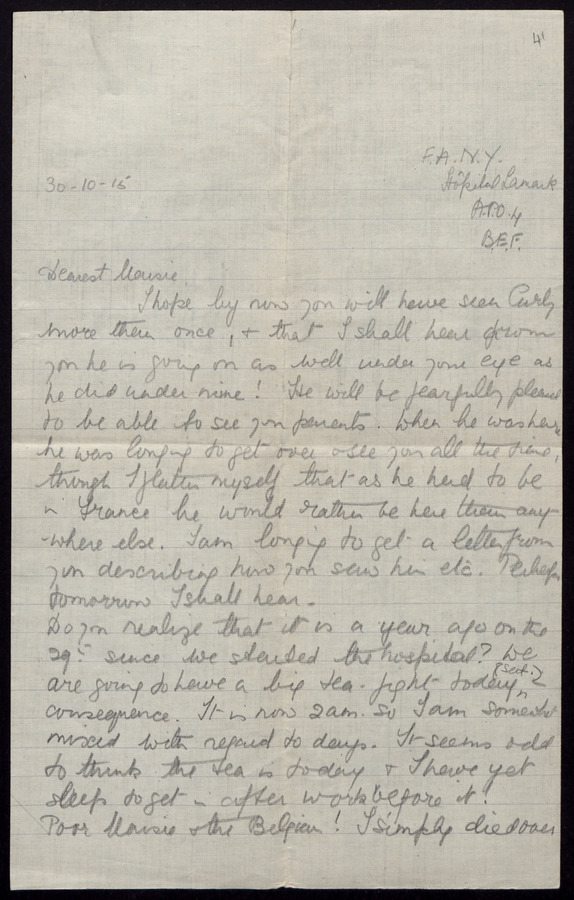 4
F.A.N.Y.
30-10-15
Hôpital Lamark
A.P.O. 4
B.E.F.
Dearest Mousie
I hope by now you will have seen Curly
more than once, + that I shall hear from
you he is going on as well under your eye as
he did under mine! He will be fearfully pleased
to be able to see parents. When he was here
he was longing to get over + see you all the time,
though I flatter myself that as he had to be
in France he would rather be here than any
-where else. I am longing to get a letter from
you describing how you saw him etc. Perhaps
tomorrow I shall hear.
Do you realize that it is a year ago on the
29th since we started the hospital? We
are going to have a big tea-fight today (Sat:) in
consequence. It is now 2am. so I am somewhat
mixed with regard to days. It seems odd
to think the tea is today & I have yet
sleep to get in after work before it!
Poor Mousie & the Belgian! I simply died over